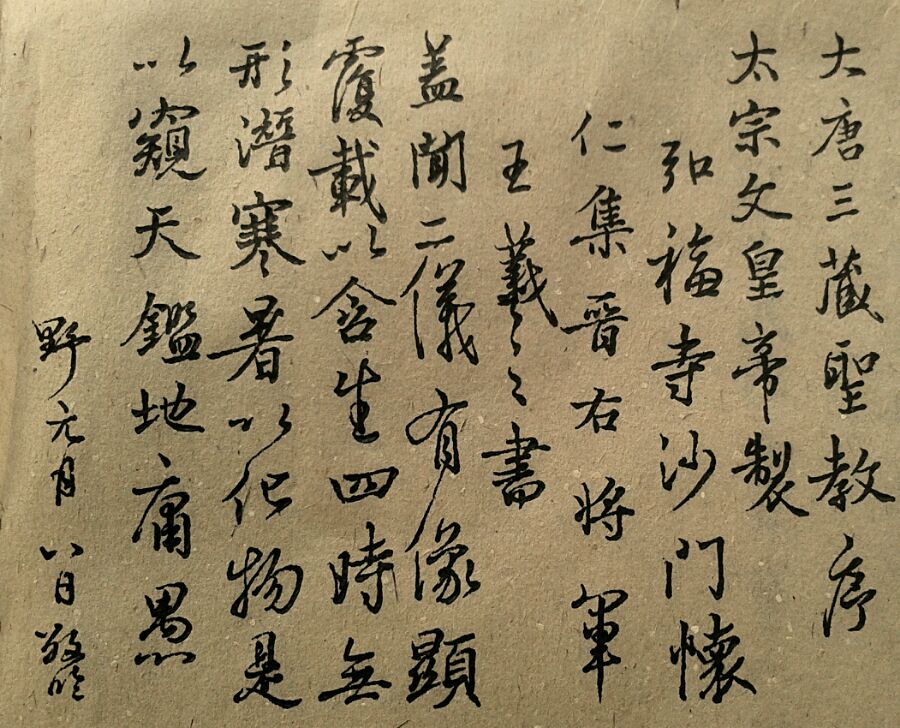 大唐三藏聖教序
太宗文皇帝製
弘福寺沙門懷
仁集晉右將軍
王羲之書
蓋聞二儀有像顯
覆載以含生四時無
形潛寒暑以化物是
以窺天鑑地庸愚
野元月八日敬